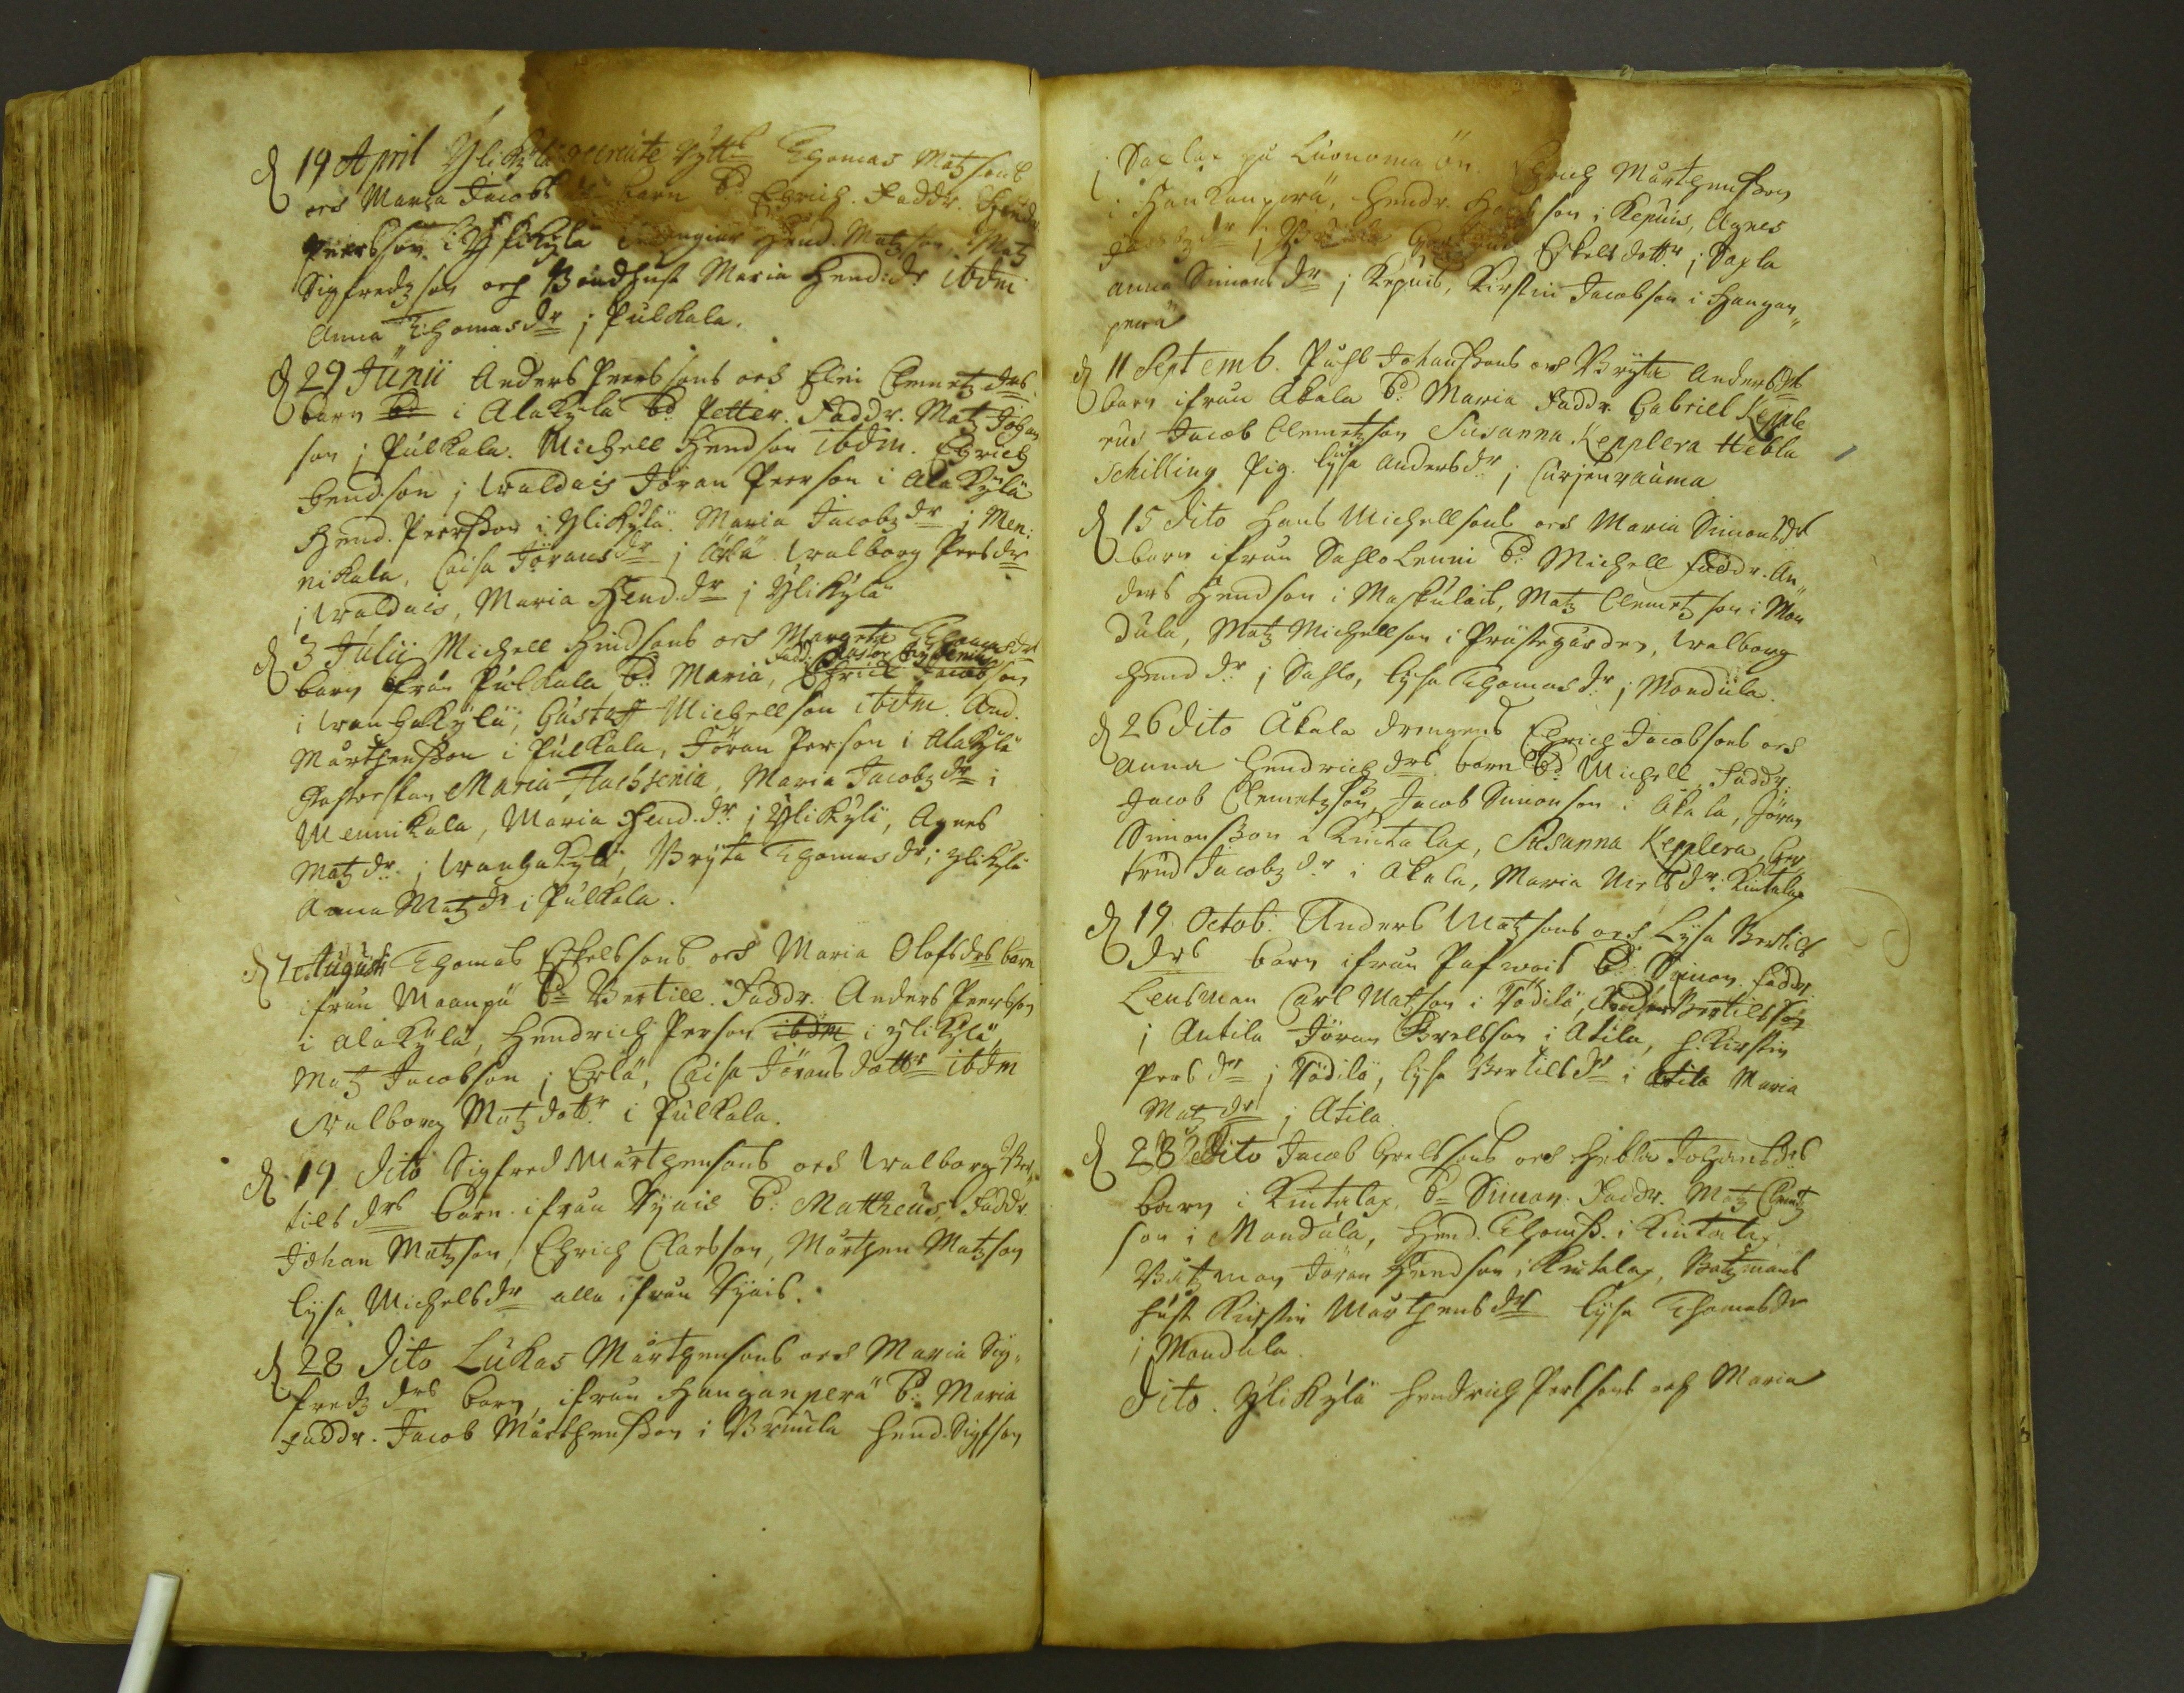 d 19 April Ylikylä recreute rytt. Thomas Matzsons
och Maria Jacobs dr barn bd Ehrich. Faddr. Hend.
Peersson i Ylikylä Hend. Matzson, Matz
Sigfredzson och Bondhust Maria Hend:dr ibdm
Anna Thomasdr j Pulkala.
d 29 Junii Anders Peerssons och Elin Clemetzdrs
barn i Alakylä bd Petter. Faddr. Matz Johan
son j Pulkala. Michell Hendson ibdm. Ehrich
Hendson j Waldais Jöran Peerson i Alakylä
Hend. Peersson i Ylikylä. Maria Jacobzdr j Men:
nikala, Caisa Jöransdr j Ärlä Walborg Persdr
j Waldais, Maria Hend.dr j Ylikylä
d 3 Julii Michell Hindsons och Margeta Thomasdrs
Fadd. Pastor
barn ifrån Pulkala bd Maria, Ehrich Jacobson
i Wanhakylä, Gustaff Michellson ibdm. And.
Mårthensson i Pulkala, Jöran Person i Alakylä
Pastorskan Maria Flachsenia, Maria Jacobzdr i
Mennikala, Maria Hend.dr j Ylikylä, Agnes
Matzdr j Wanhakylä, Bryta Thomasdr i Ylikylä
Anna Matzdr i Pulkala.
d 7 Augusti Thomas Eskelssons och Maria Olofsdrs barn
ifrån Maanpä bd Bertill. Faddr. Anders Peersson
i Alakylä, Hendrich Person ibdm i Ylikylä,
Matz Jacobson j Erlä, Caisa Jöransdottr ibdm
Walborg Matzdottr i Pulkala.
d 19 dito Sigfred Mårthensons och Walborg Ber„
tilsdrs barn ifrån Vyais bd Mattheus, Faddr.
Johan Matzson, Ehrich Clarsson, Mårthen Matzson
Lysa Michelsdr alla ifrån Vyais.
d 28 dito Lukas Mårthensons och Maria Sig„
fredzdrs barn, ifrån Hanganperä bd Maria
Faddr. Jacob Mårthensson i Brusila Hend. Sigfson
j Saxlax på Luonoma ön. Ehrich Mårthensson
i Hankanperä, Hendr. son i Kepuis, Agnes
dr j Eskelsdottr j Saxla
Anna Simonsdr j Kepuis, Kirstin Jacobson i Hangan„
perä
d 11 Septemb. Påhl Johanssons och Bryta Andersdrs
barn ifrån Åkala bd Maria Faddr. Gabriel Kepple
rus Jacob Clemetzson Susanna Kepplera Hebla
Schilling Pig. Lysa Andersdr j Curjenrauma
d 15 dito Hans Michellsons och Maria Simonsdrs
barn ifrån Sahlolenni bd Michell Faddr. An„
ders Hendson i Maskulais, Matz Clemetzson i Mon
dula, Matz Michellson i Prästegården, Walborg
Henddr j Sahlo, Lysa Thomasdr j Mondula.
d 26 dito Åkala drengens Ehrich Jacobsons och
Anna Hendrichdrs barn bd Michell, Faddr.
Jacob Clemetzson, Jacob Simonson i Åkala, Jöran
Simonsson i Kintalax, Susanna Kepplera, Ger
trud Jacobzdr i Åkala, Maria Nielsdr i Kintalax
d 19 Octob. Anders Matzsons och Lysa Bertils
drs barn ifrån Pafwais bd Simon. Faddr.
Lensman Carl Matzson i Nädilä, Anders Bertilsson
j Antila Jöran Grelsson i Atila, H. Kirstin
Persdr j Nädilä, Lysa Bertilsdr i Atila Maria
Matzdr j Atila.
d 28 Dito Jacob Grelssons och Hebla Johansdrs
barn i Kintalax bd Simon. Faddr. Matz Clemetz
son i Mondula, Hend. Thomss. i Kintalax
Båtzman Jöran Hendson i Kintalax, Båtzmans
hust. Kirstin Mårthensdr Lysa Thomasdr
j Mondula.
Dito. Ylikylä Hendrich Perssons och Maria